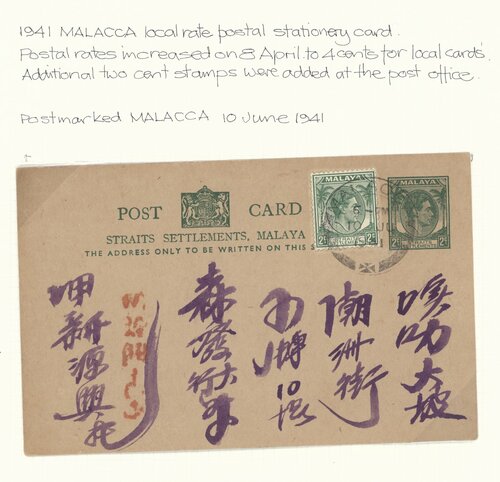 1941 MALACCA local rate postal stationery card.
Postal rates increased on 8 April to 4 cents for local cards.
Additional two cent stamps were added at the post office.
Postmarked MALACCA 10 June 1941
POST CARD
STRAITS SETTLEMENTS, MALAYA
THE ADDRESS ONLY TO BE WRITTEN ON THIS S
MALAYA
2¢ 2¢
MALAYA
2¢ 2¢
大坡
潮州街
森發
新源興